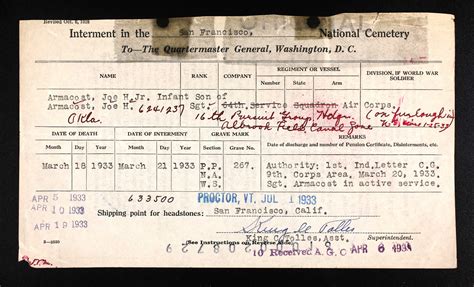 Revised Oct. 6, 1928
Interment in the San Francisco, National Cemetery
To—The Quartermaster General, Washington, D. C.
NAME
RANK
COMPANY
REGIMENT OR VESSEL
Number State Arm
DIVISION, IF WORLD WAR SOLDIER
Armacost, Joe H. Jr. Infant Son of
Armacost, Joe H. 6241237 Sgt. 64th. Service Squadron Air Corps.
Okla. 16th Pursuit Group, Hdqrs. (on furlough in
Albrook Field, Canal Zone
DATE OF DEATH
DATE OF INTERMENT
GRAVE MARKS
Month Day Year Month Day Year Sec. Grave No.
March 18 1933 March 21 1933 P.P. GRAVE 267. Authority: 1st, Ind, Letter C.G.
N.A. 9th. Corps Area, March 20, 1933.
W.S. Sgt. Armacost in active service.
APR 5 1933 633500 PROCTOR, VT. JUL 1 1933
Shipping point for headstones: San Francisco, Calif.
APR 10 1933
APR 19 1933
King C Tolles
King C Tolles, Asst. Superintendent.
(See Instructions on Reverse Side)
10 Received A. G. O. APR 6 1933